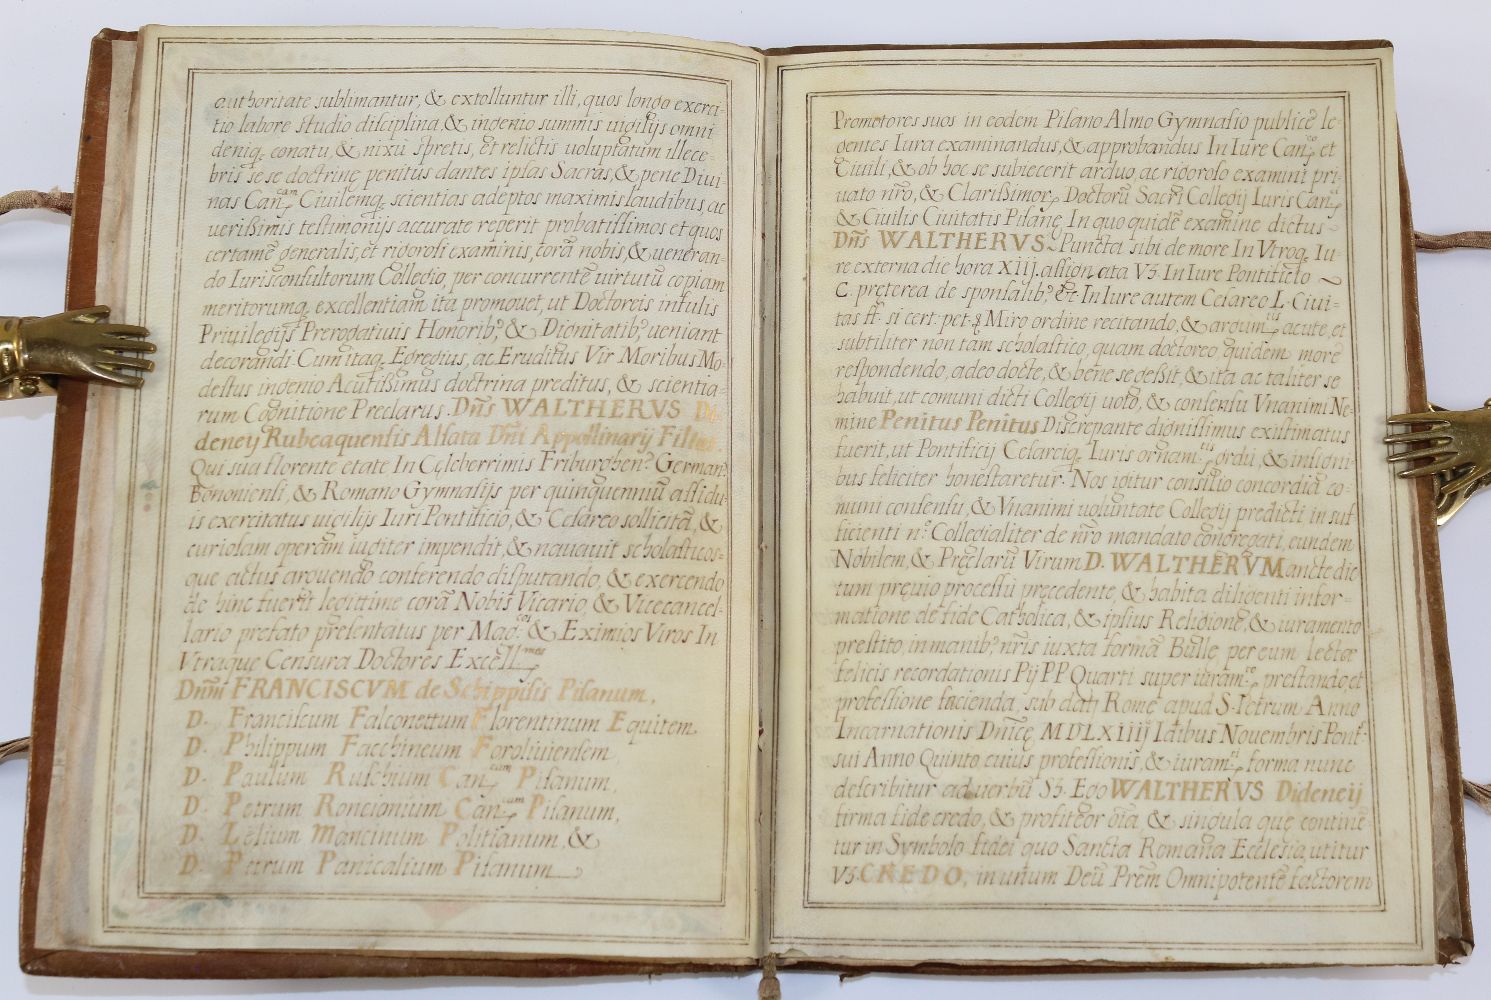 authoritate sublimantur, & extolluntur illi, quos longo exerci-
tio labore studio disciplina, & ingenio summis uigilijs omni
deniq; conatu, & nixū spretis, et relictis uoluptatum illece-
bris se se doctrinę penitus dantes ipsas Sacras, & pene Diui-
nas Can.cam Ciuilemq; scientias adeptos maximis laudibus, ac
uerissimis testimonijs accurate reperit probatissimos et quos
certamē generalis, et rigorosi examinis, corā nobis, & ueneran-
do Iurisconsultorum Collegio, per concurrentē uirtutū copiam
meritorumq; excellentiam ita promouet, ut Doctoreis insulis
Priuilegijs Prerogatiuis Honorib9, & Dignitatib9, ueniant
decorandi. Cum itaq; Egregius, ac Eruditus Vir Moribus Mo-
destus ingenio Acutissimus doctrina preditus, & scientia-
rum Cognitione Preclarus. Dn̄s WALTHERVS Di-
deneij Rubeaquensis Alsata Dn̄i Appollinarij Filius.
Qui sua florente etate In Cęleberrimis Friburghen9 German9
Bononiensi, & Romano Gymnasijs per quinquenniū assidu-
is exercitatus uigilijs Iuri Pontificio, & Cesareo sollicitā, &
curiosam operam iugiter impendit, & nauauit scholasticos-
que actus arguendo conferendo disputando, & exercendo
de hinc fuerit legittime corā Nobis Vicario, & Vicecancel-
lario prefato presentatus per Mag.cos & Eximios Viros In
Vtraque Censura Doctores Excell.mos
Dn̄m FRANCISCVM de Schippisis Pisanum,
D. Franciscum Falconettum Florentinum Equitem
D. Philippum Facchineum Foroliuiensem,
D. Paulum Ruschium Can.cum Pisanum,
D. Petrum Roncionium Can.cum Pisanum,
D. Lelium Mancinum Politianum, &
D. Petrum Panicalium Pisanum
Promotores suos in eodem Pisano Almo Gymnasio publicē le-
gentes Iura examinandus, & approbandus In Iure Can.co et
Ciuili, & ob hoc se subiecerit arduo, ac rigoroso examini pri-
uato nr̄o, & Clarissimor. Doctorū Sacri Collegij Iuris Can.ci
& Ciuilis Ciuitatis Pisanę In quo quidē examine dictus
Dn̄s WALTHERVS. Puncta sibi de more In Vtroq; Iu-
re externa die hora XIIJ. assignata Vz. In Iure Pontificio
C. preterea de sponsalib9 &c. In Iure autem Cesareo L. Ciui-
tas ff. si cert. pet. Miro ordine recitando, & argum.tis acute, et
subtiliter non tam scholastico, quam doctoreo, quidem more
respondendo, adeo docte, & bene se gessit, & ita ac taliter se
habuit, ut comuni dicti Collegij uoto, & consensu Vnanimi Ne-
mine Penitus Penitus Discrepante dignissimus existimatus
fuerit, ut Pontificij Cesareiq; Iuris ornam.tis ordū, & insigni-
bus feliciter honestaretur. Nos igitur consilio concordiā co-
muni consensu, & Vnanimi uoluntate Collegij predicti in suf-
ficienti n.o Collegialiter de nr̄o mandato congregati, eundem
Nobilem, & Pręclarū Virum D. WALTHERVM ancte dic-
tum preuio processū pręcedente, & habita diligenti infor-
matione de fide Catholica, & ipsius Religionē, & iuramento
prestito, in manib9 nr̄is iuxta formā Bulle, per eum lectæ
felicis recordationis Pij PP Quarti super iuram.to prestando, et
professione facienda, sub dati Rome apud S. Petrum Anno
Incarnationis Dn̄icę MDLXIIIJ Idibus Nouembris Pont-
sui Anno Quinto cuius professionis, & iuram.ti forma nunc
describitur ad uerbū Sz. Ego WALTHERVS Dideneij
firma fide credo, & profiteor oīa, & singula que contine-
tur in Symbolo fidei quo Sancta Romana Ecclesia utitur
Vz. CREDO, in unum Deū Prēm Omnipotentē factorem